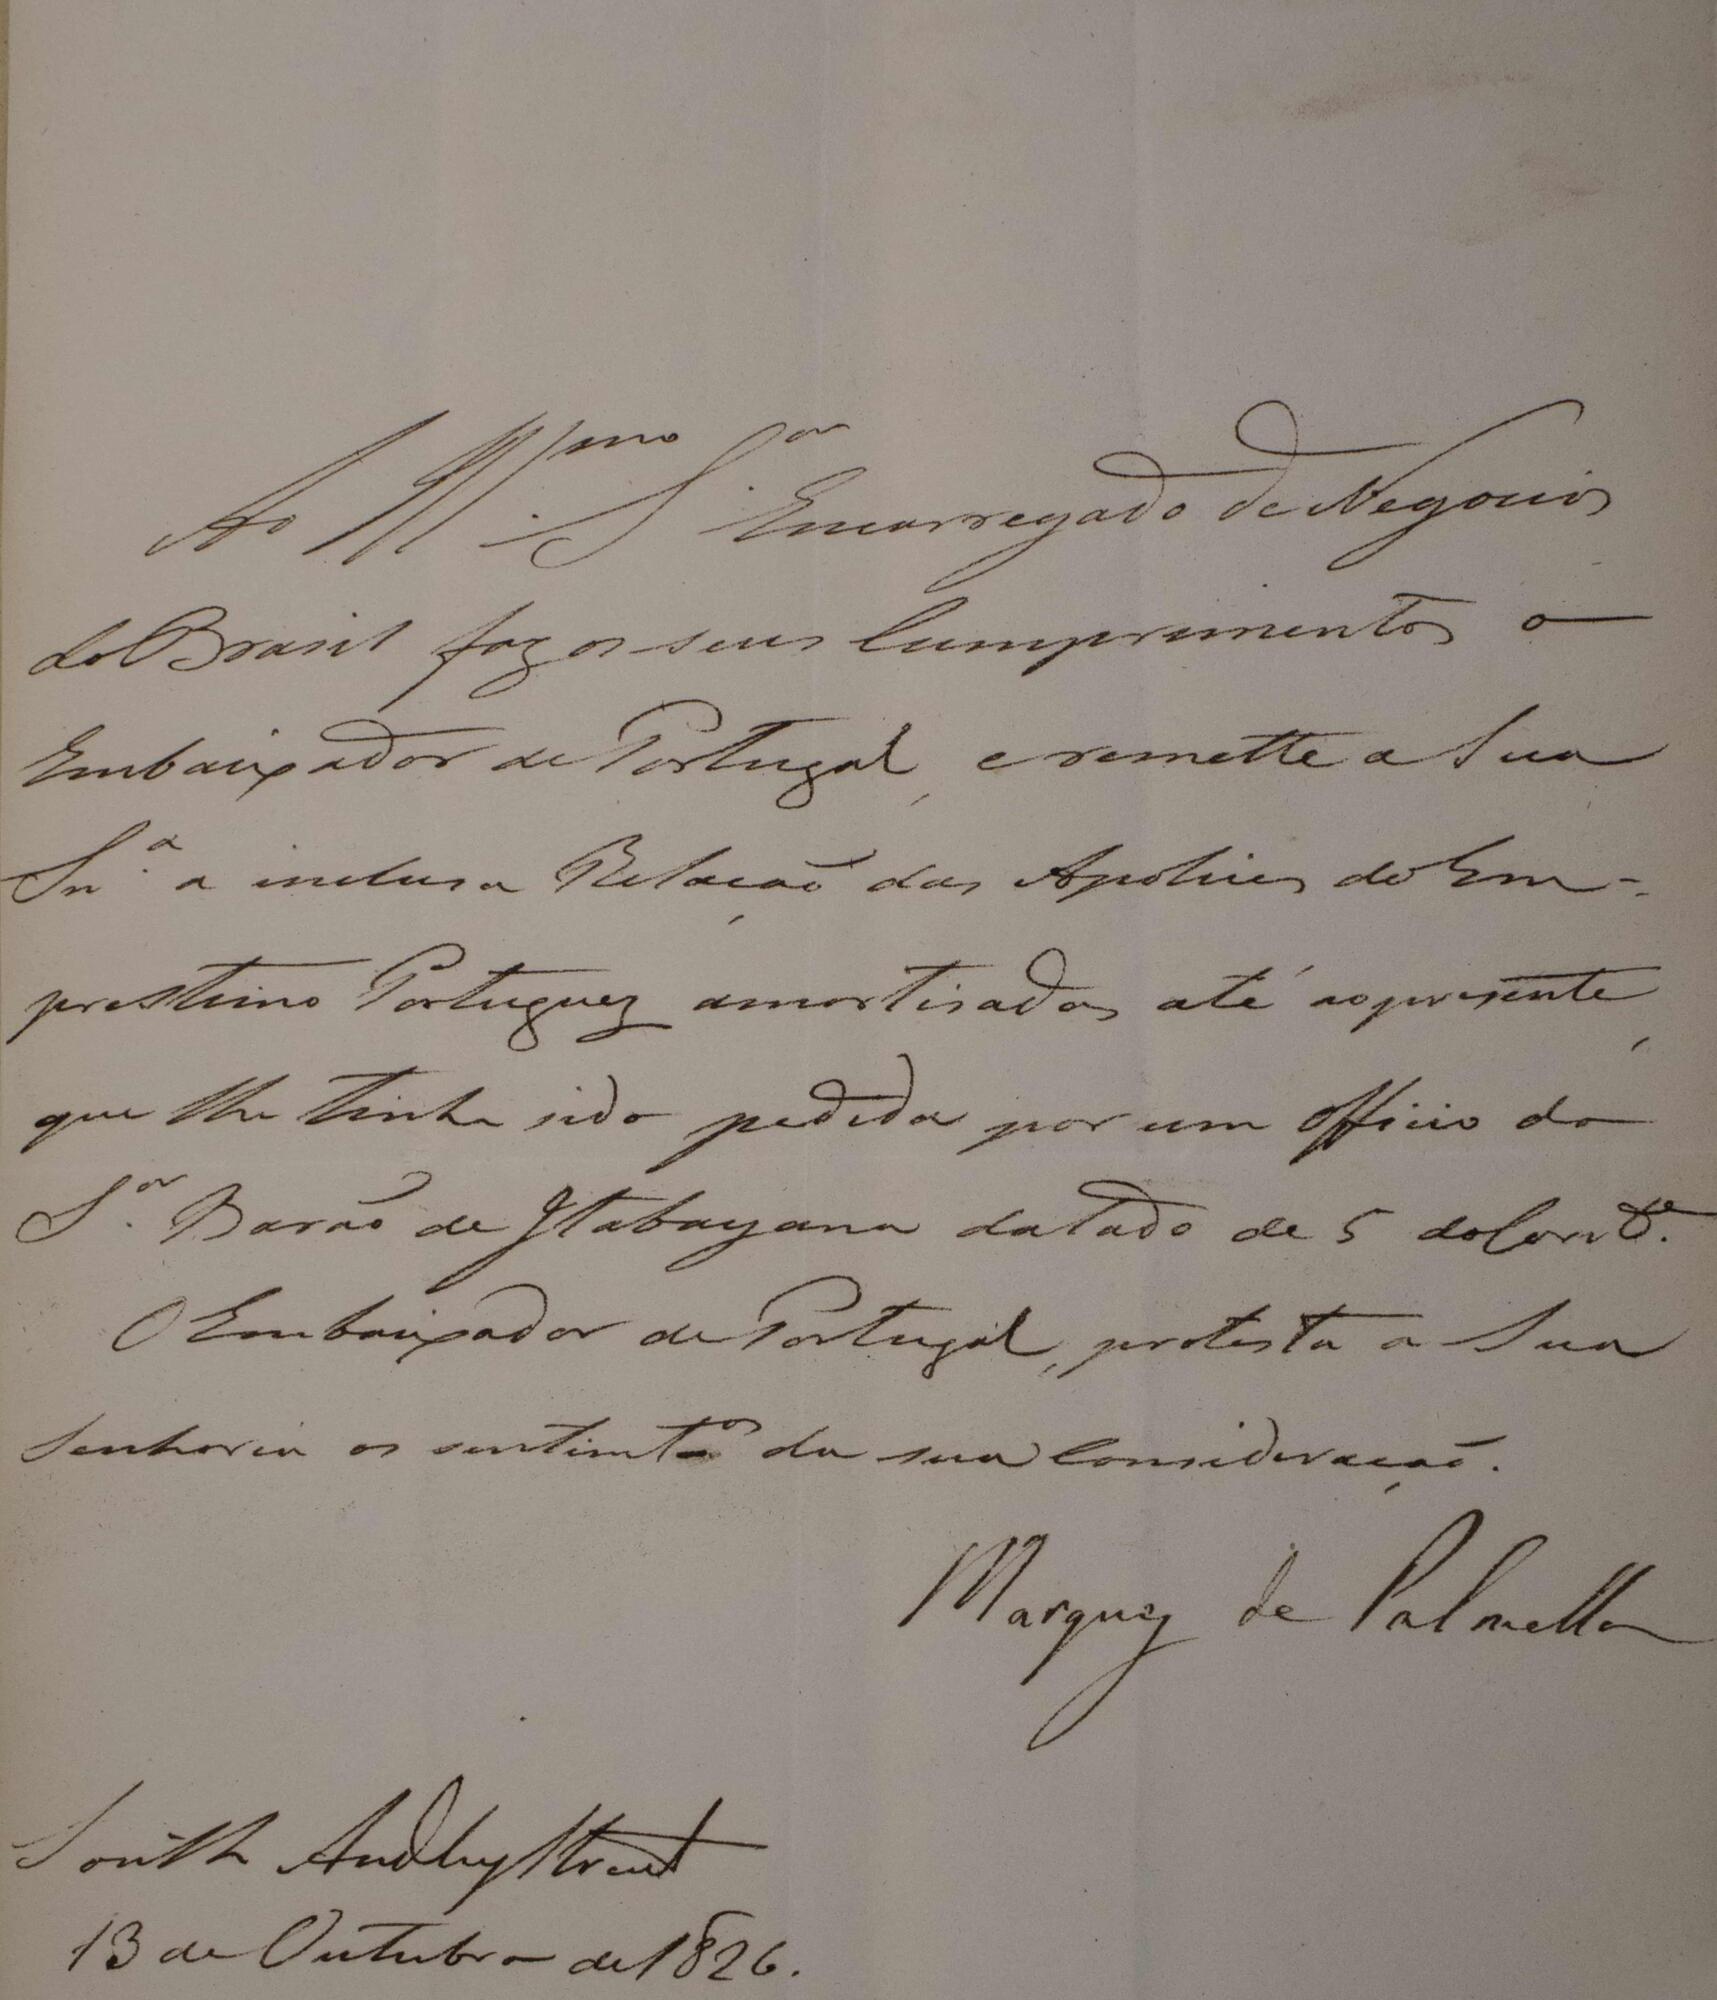 Ao Ill.mo S.or Encarregado de Negocios
do Brasil faz os seus Cumprimentos o
Embaixador de Portugal, e remette a Sua
Sn.a a inclusa Relação das Apolices do Em-
prestimo Portuguez amortisadas até ao presente,
que lhe tinha sido pedida por um Officio do
S.or Barão de Itabayana datado de 5 do Corr.te.
O Embaixador de Portugal, protesta a Sua
Senhoria os sentimtos da sua Consideração.
Marquez de Palmella
South Audley Street
13 de Outubro de 1826.